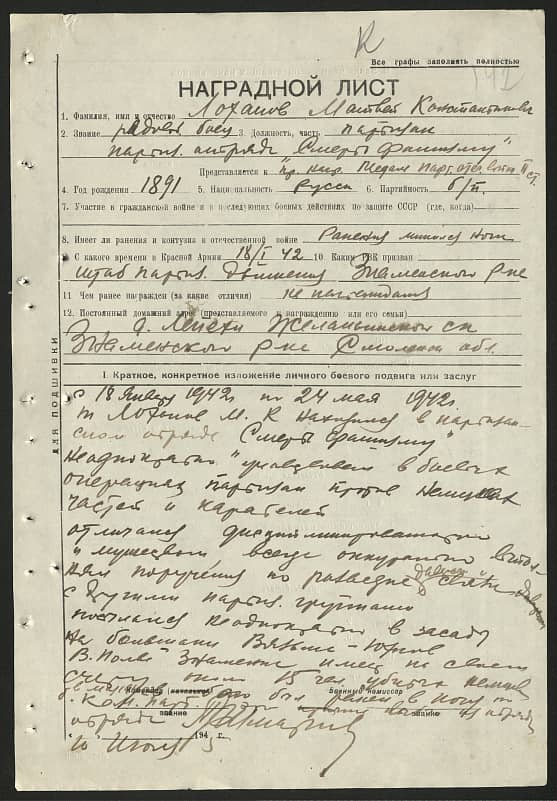 К
Все графы заполнять полностью
НАГРАДНОЙ ЛИСТ
1. Фамилия, имя и отчество Лоханов Матвей Константинович
2. Звание рядовой боец 3. Должность, часть партизан
партиз. отряда "Смерть фашизму"
Представляется к
4. Год рождения 1891 5. Национальность Русск 6. Партийность б/п.
7. Участие в гражданской войне и в последующих боевых действиях по защите СССР (где, когда)
8. Имеет ли ранения и контузия в отечественной войне Ранения
9. С какого времени в Красной Армии 18/I 42 10 Каким РВК призван
штаб партиз. движения Знаменского р-на
11 Чем ранее награжден (за какие отличия) не награждался
12. Постоянный домашний адрес (представляемого к награждению или его семьи)
д. Желаньинского сп
Знаменского р-на Смоленской обл.
ДЛЯ ПОДШИВКИ
I. Краткое, конкретное изложение личного боевого подвига или заслуг
с 18 января 1942 г. по 24 мая 1942 г.
т. Лоханов М. К. находился в партизан-
ском отряде "Смерть фашизму"
неоднократно участвовал в боевых
операциях партизан против немецких
частей и карателей
отличался дисциплинированностью
и мужеством всегда аккуратно выпол-
нял поручения по разведке связи
с другими партиз. группами
неоднократно в засаду
На большаке Вязьма - Юхнов
Знаменка имеет на своем
счету около 15 чел. убитых немцев
Командир (начальник) Военный комиссар
был ранен в ногу
Ком. парт.
звание звание
отряда
10 июля 194 5